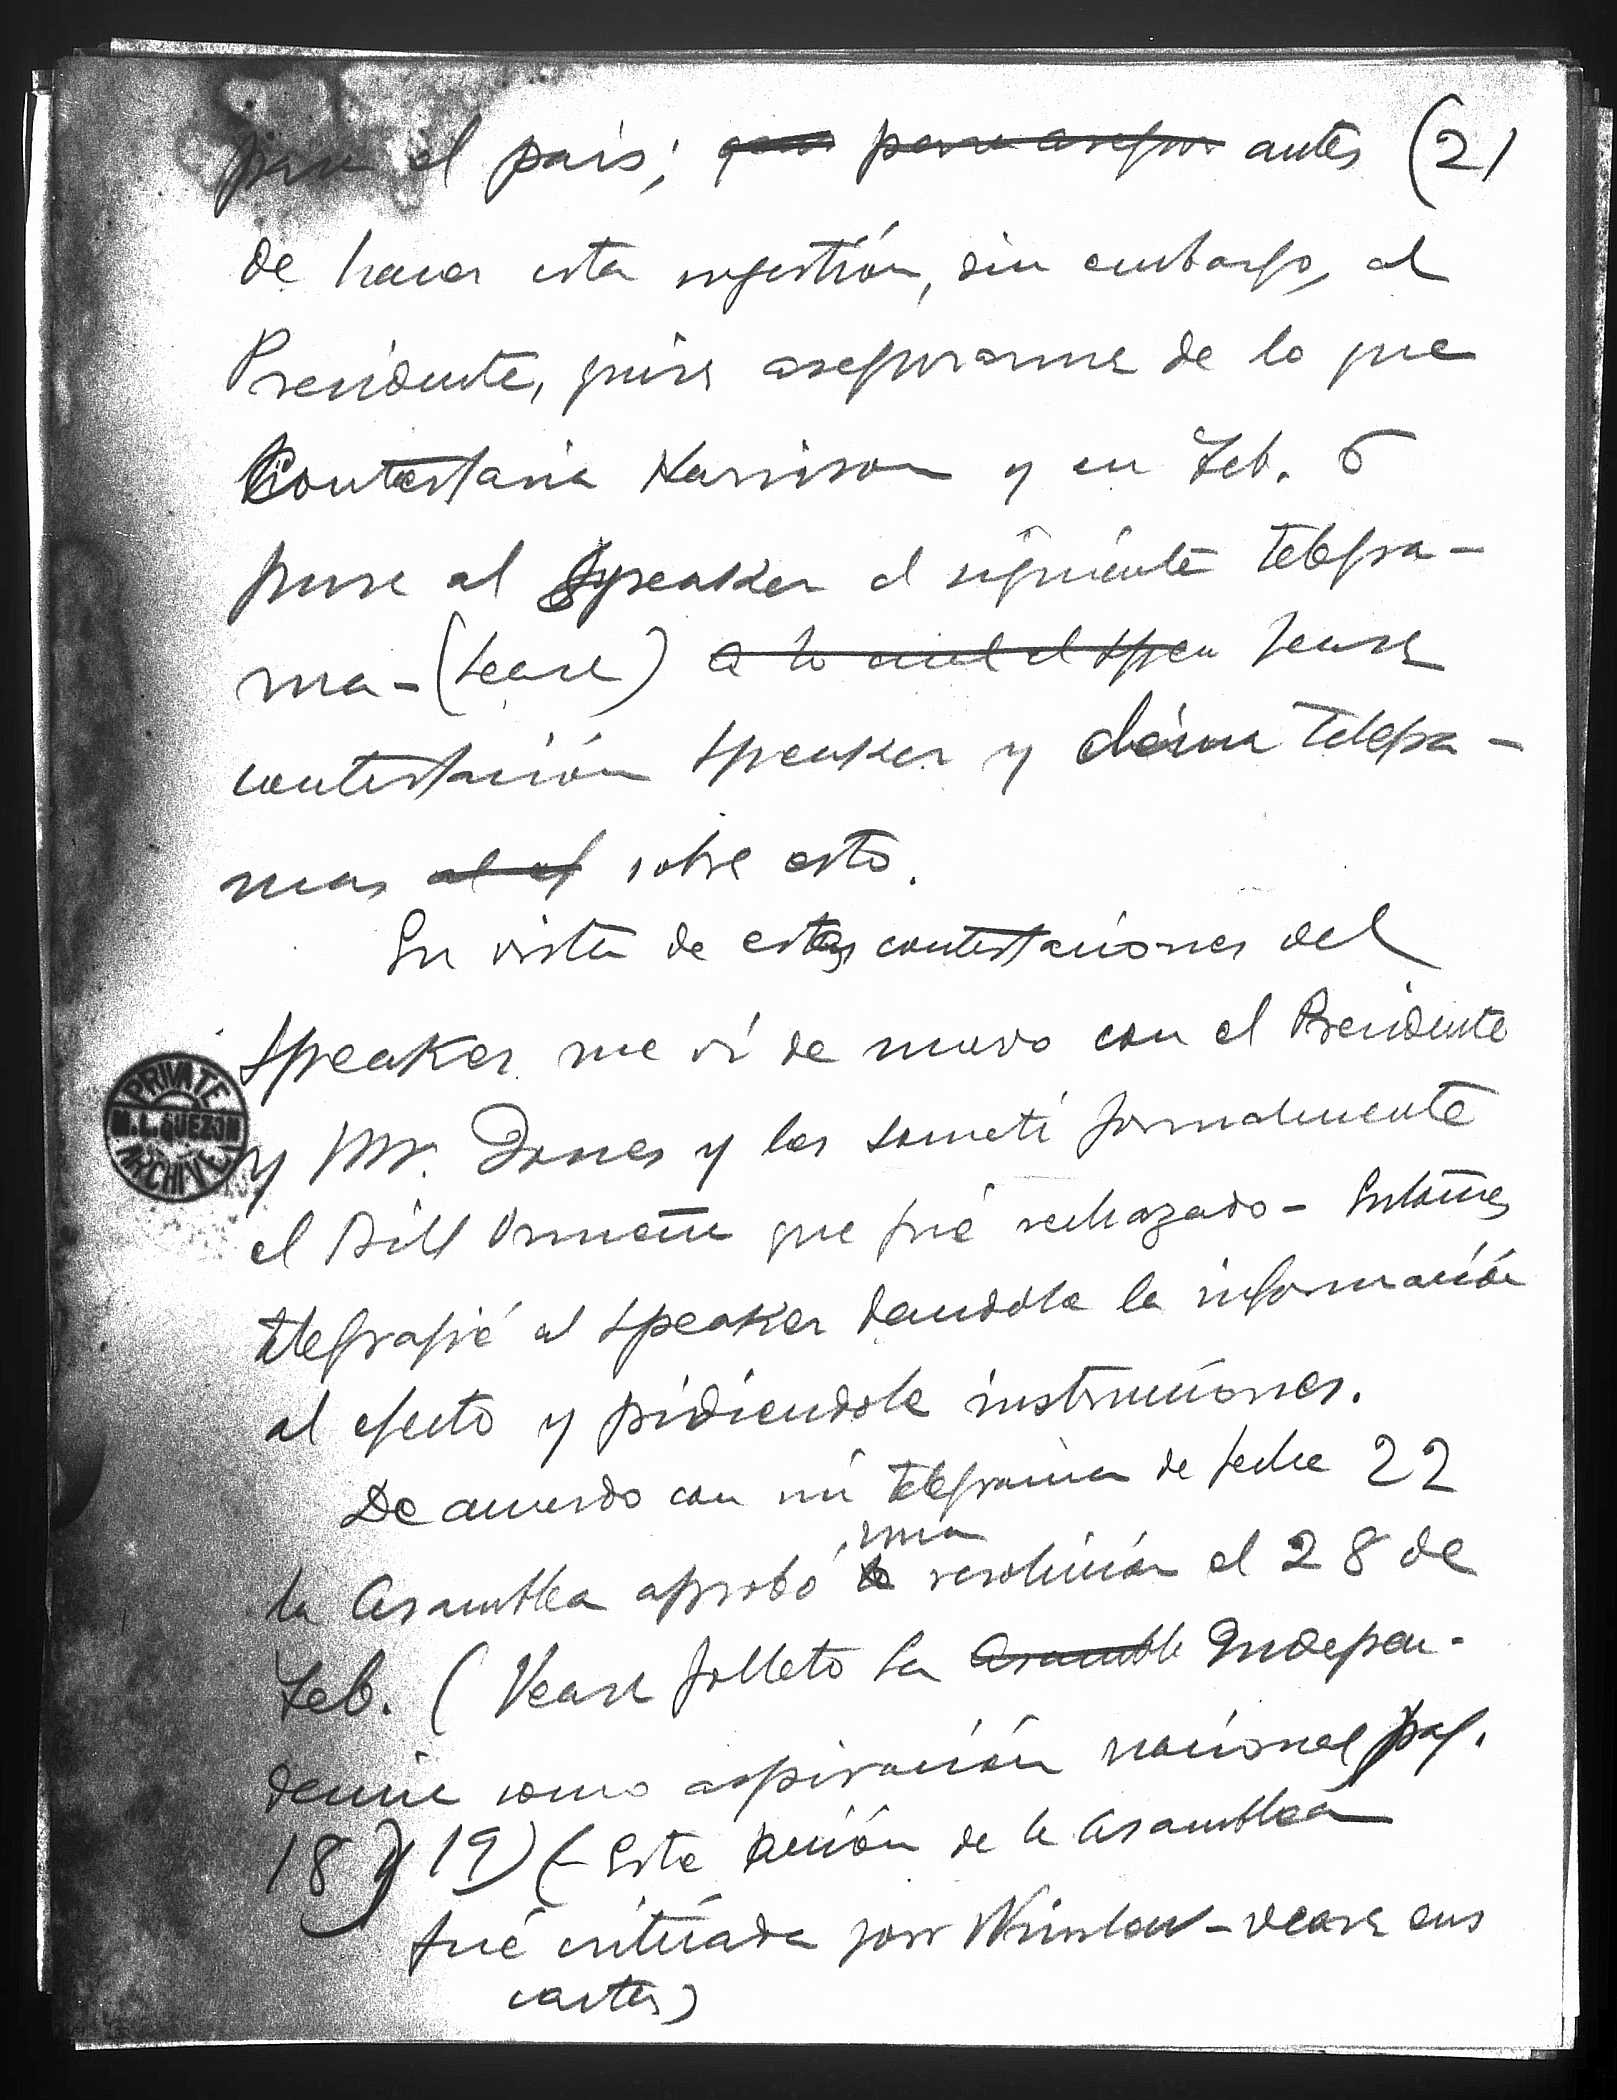 para el país; para asegur antes (2)
de hacer esta sugestión, sin embargo, al
Presidente, quise asegurarme de lo que
Contestaria Harrison y en Feb. 6
puse al Speaker el siguiente telegra-
ma - (vease) a lo cual el Spea vease
contestación Speaker y demas telegra-
mas al ef sobre esto.
En vista de estas contestaciones del
Speaker me ví de nuevo con el Presidente
y Mr. Jones y les sometí formalmente
el Bill que fué rechazado - Entonces
telegrafié al Speaker dandole la información
al efecto y pidiendole instrucciones.
De acuerdo con mi telegrama de fecha 22
una
la Asamblea aprobó la resolución el 28 de
Feb. (Vease folleto La Asamble Indepen-
dencia como aspiración nacional pag.
18 y 19) (- Esta acción de la Asamblea
fué criticada por Winslow - vease sus
cartas)
PRIVATE
M. L. QUEZON
ARCHIVE